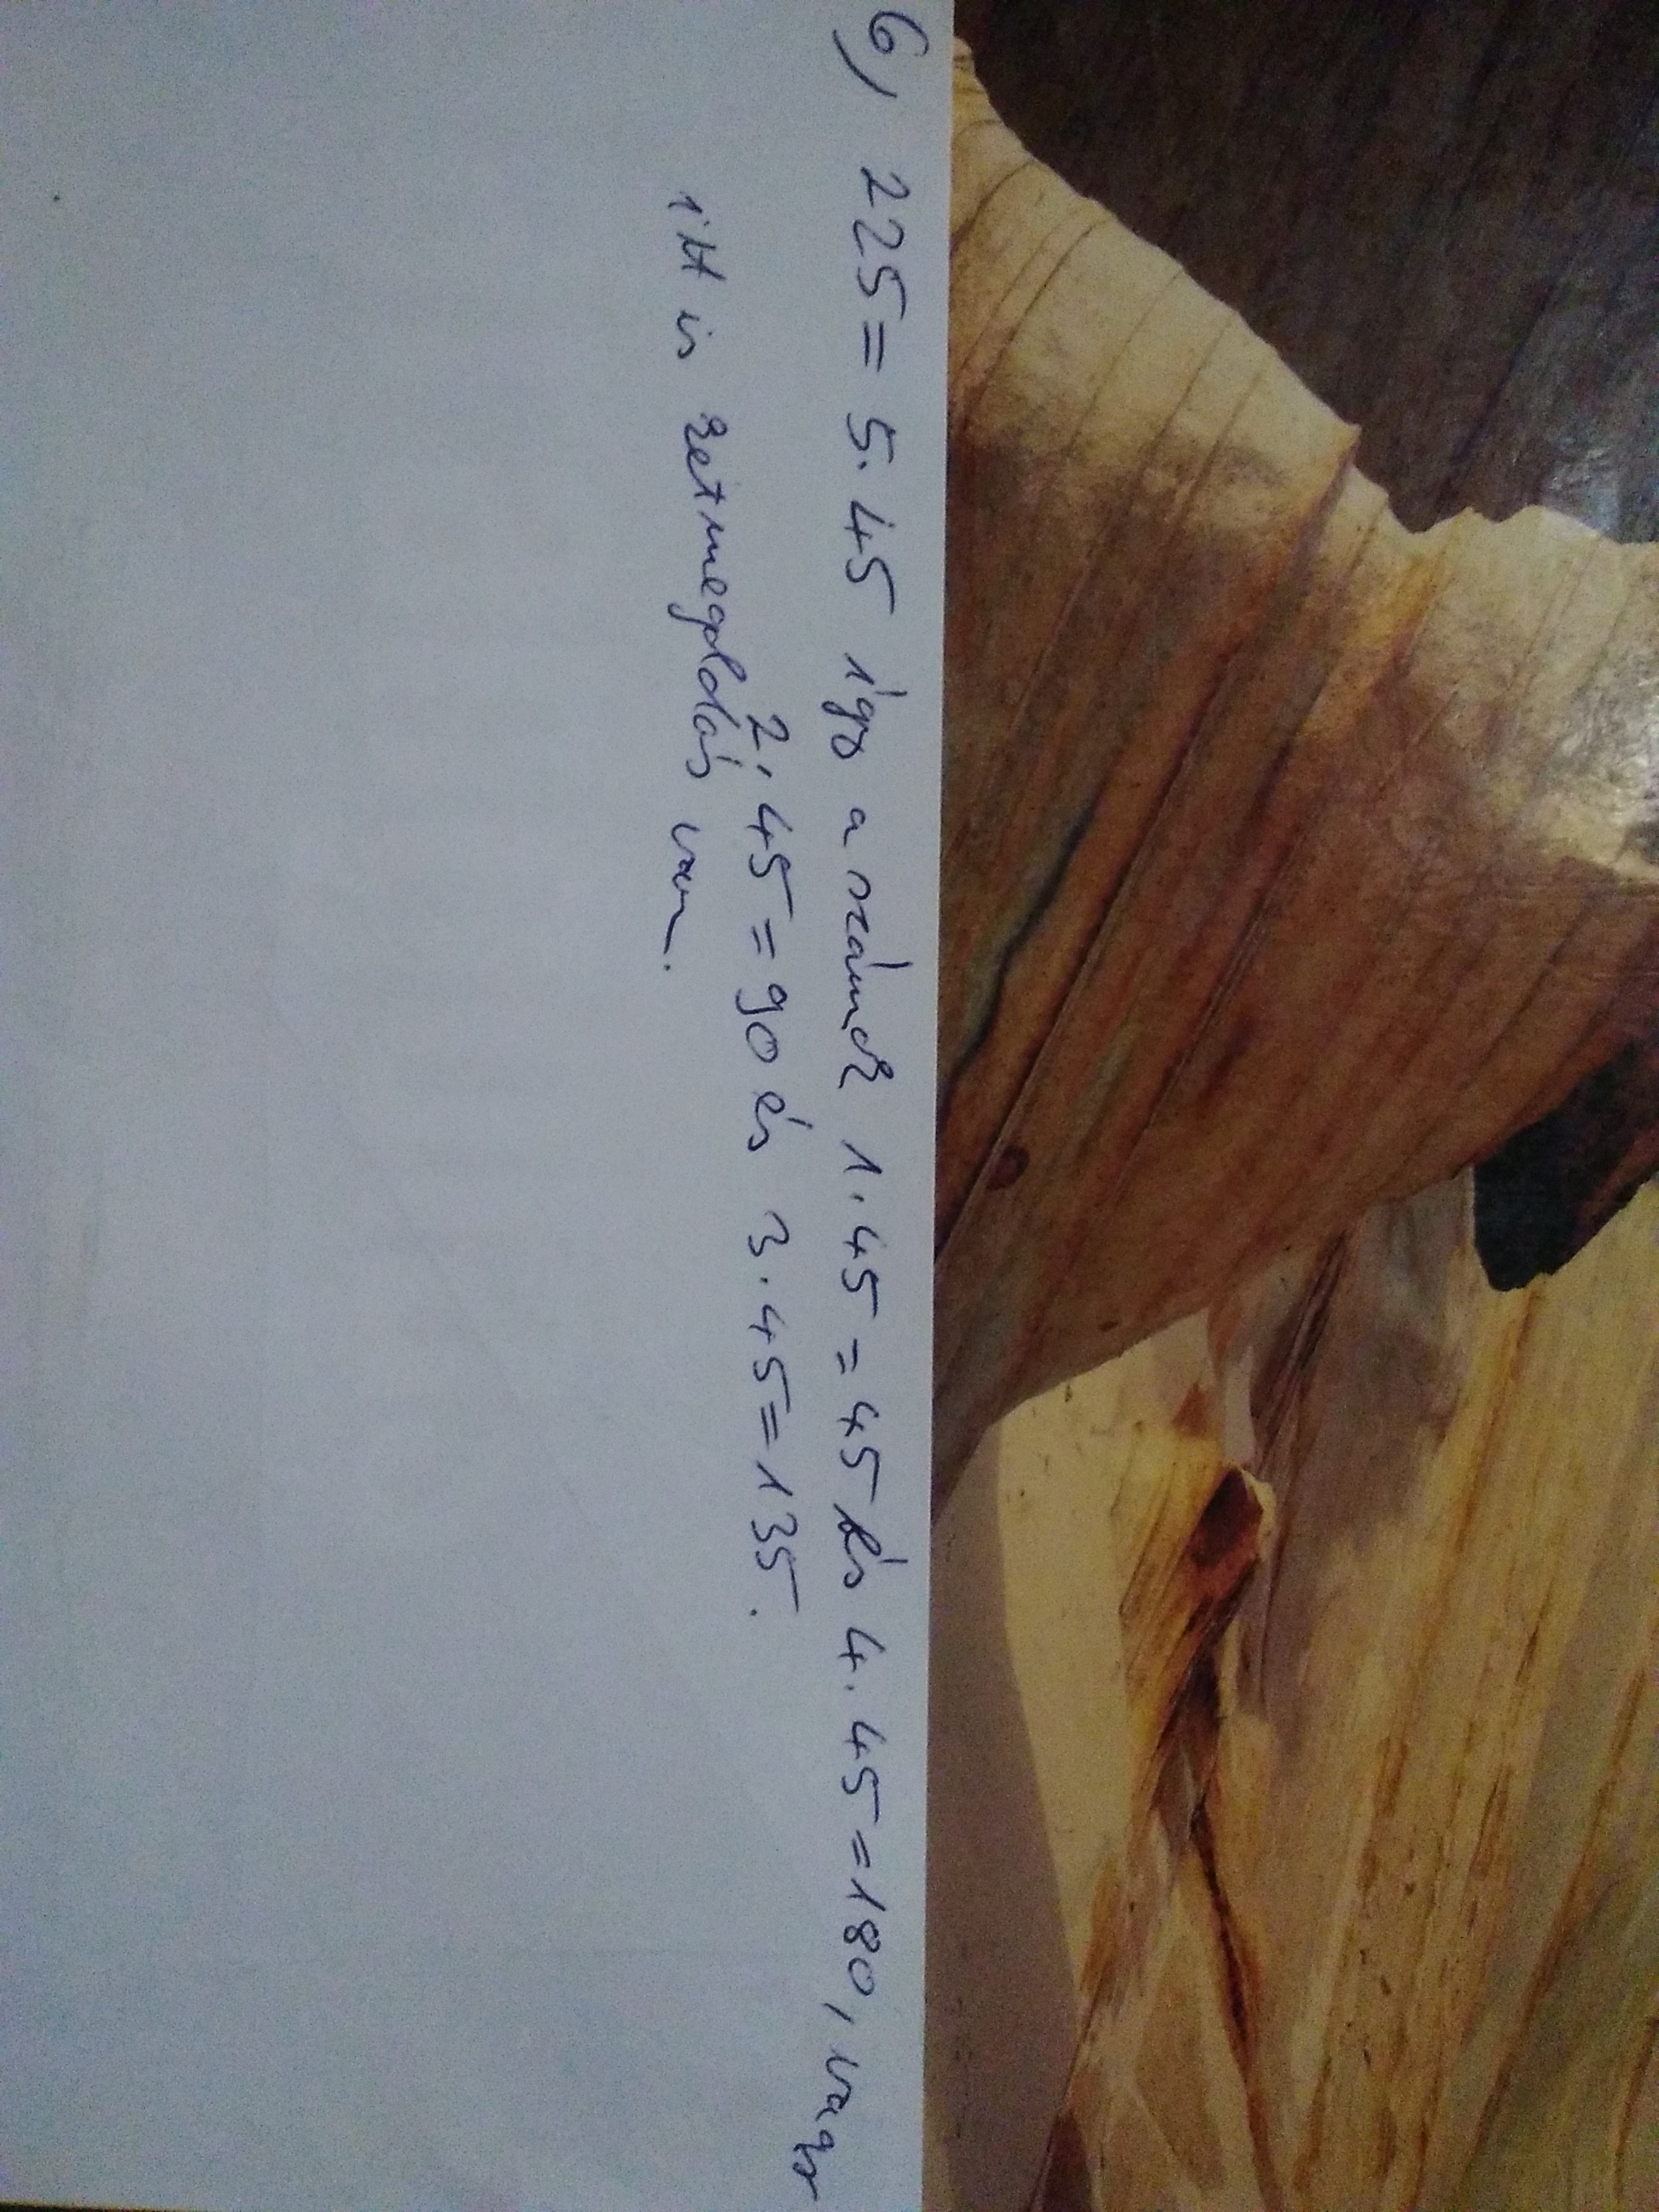 6, 225 = 5·45 így a számok 1·45 = 45 és 4·45 = 180, vagy
2·45 = 90 és 3·45 = 135.
itt is két megoldás van.